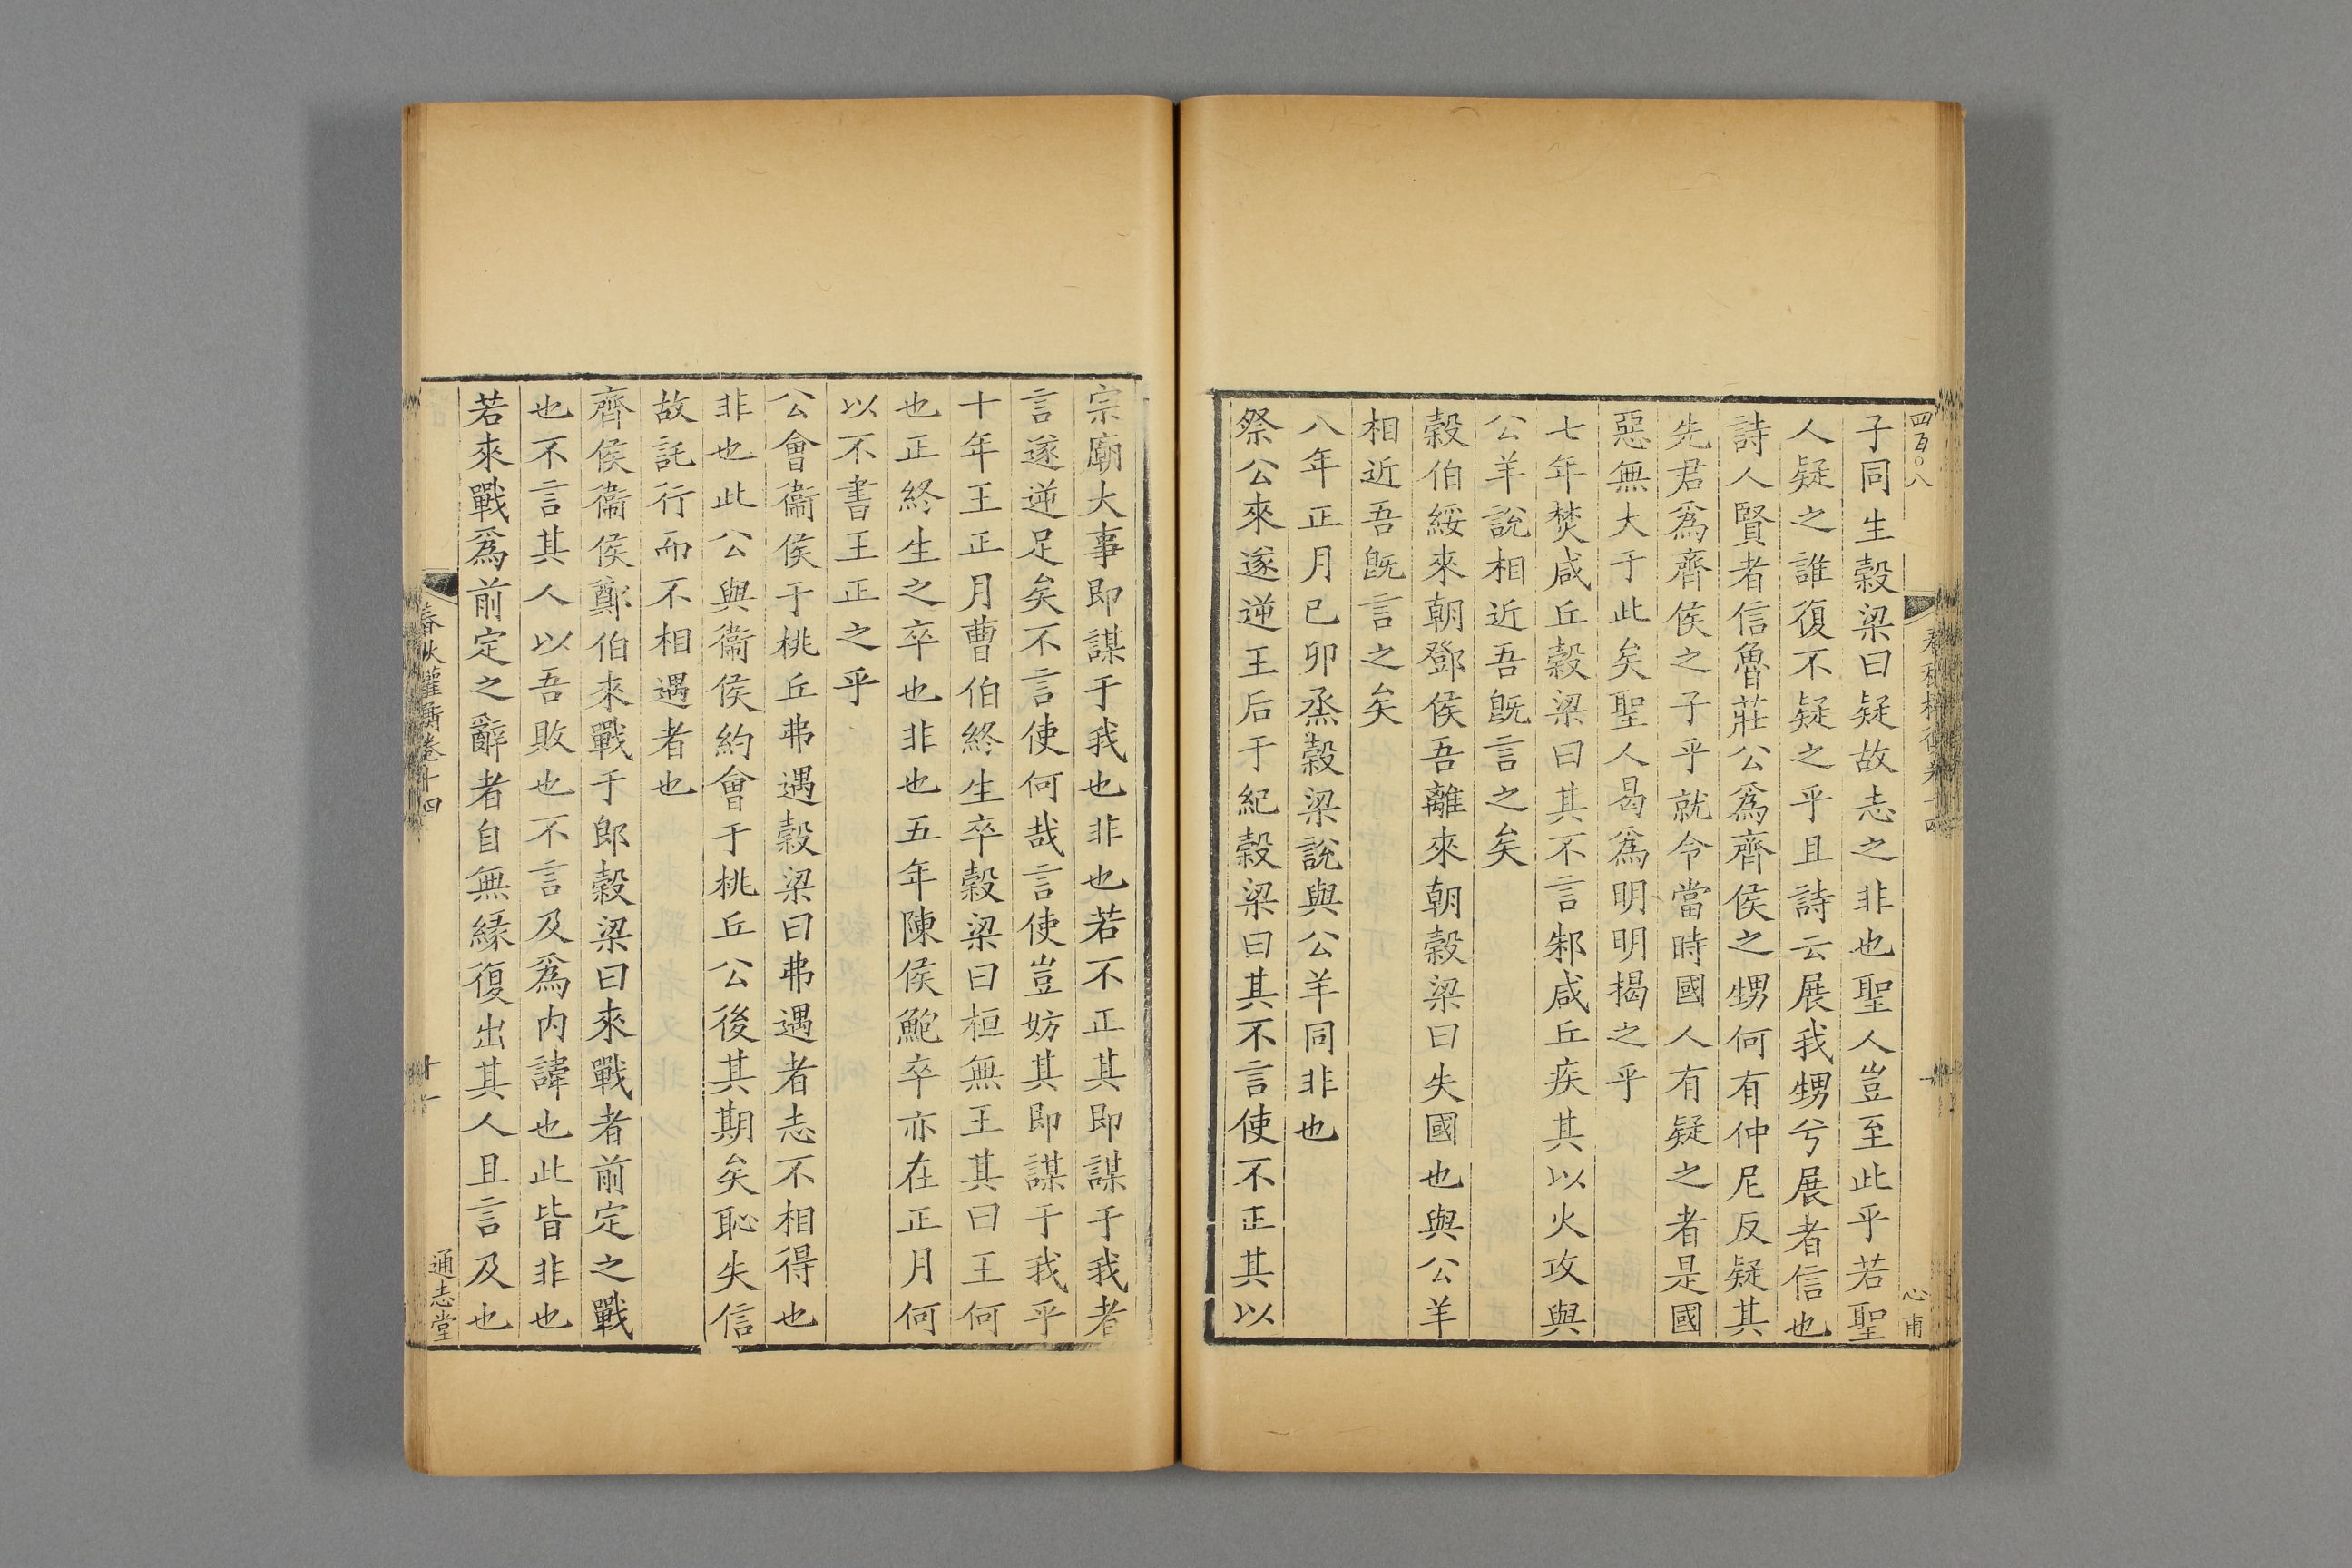 四百○八
心甫
子同生穀梁曰疑故志之非也聖人豈至此乎若聖
人疑之誰復不疑之乎且詩云展我甥兮展者信也
詩人賢者信魯莊公爲齊侯之甥何有仲尼反疑其
先君爲齊侯之子乎就令當時國人有疑之者是國
惡無大于此矣聖人曷爲明明揭之乎
七年焚咸丘穀梁曰其不言邾咸丘疾其以火攻與
公羊說相近吾旣言之矣
穀伯綏來朝鄧侯吾離來朝穀梁曰失國也與公羊
相近吾旣言之矣
八年正月己卯烝穀梁說與公羊同非也
祭公來遂逆王后于紀穀梁曰其不言使不正其以
宗廟大事即謀于我也非也若不正其即謀于我者
言遂逆足矣不言使何哉言使豈妨其即謀于我乎
十年王正月曹伯終生卒穀梁曰桓無王其曰王何
也正終生之卒也非也五年陳侯鮑卒亦在正月何
以不書王正之乎
公會衞侯于桃丘弗遇穀梁曰弗遇者志不相得也
非也此公與衞侯約會于桃丘公後其期矣恥失信
故託行而不相遇者也
齊侯衞侯鄭伯來戰于郎穀梁曰來戰者前定之戰
也不言其人以吾敗也不言及爲內諱也此皆非也
若來戰爲前定之辭者自無緣復出其人且言及也
春秋權衡卷十四
十一
通志堂